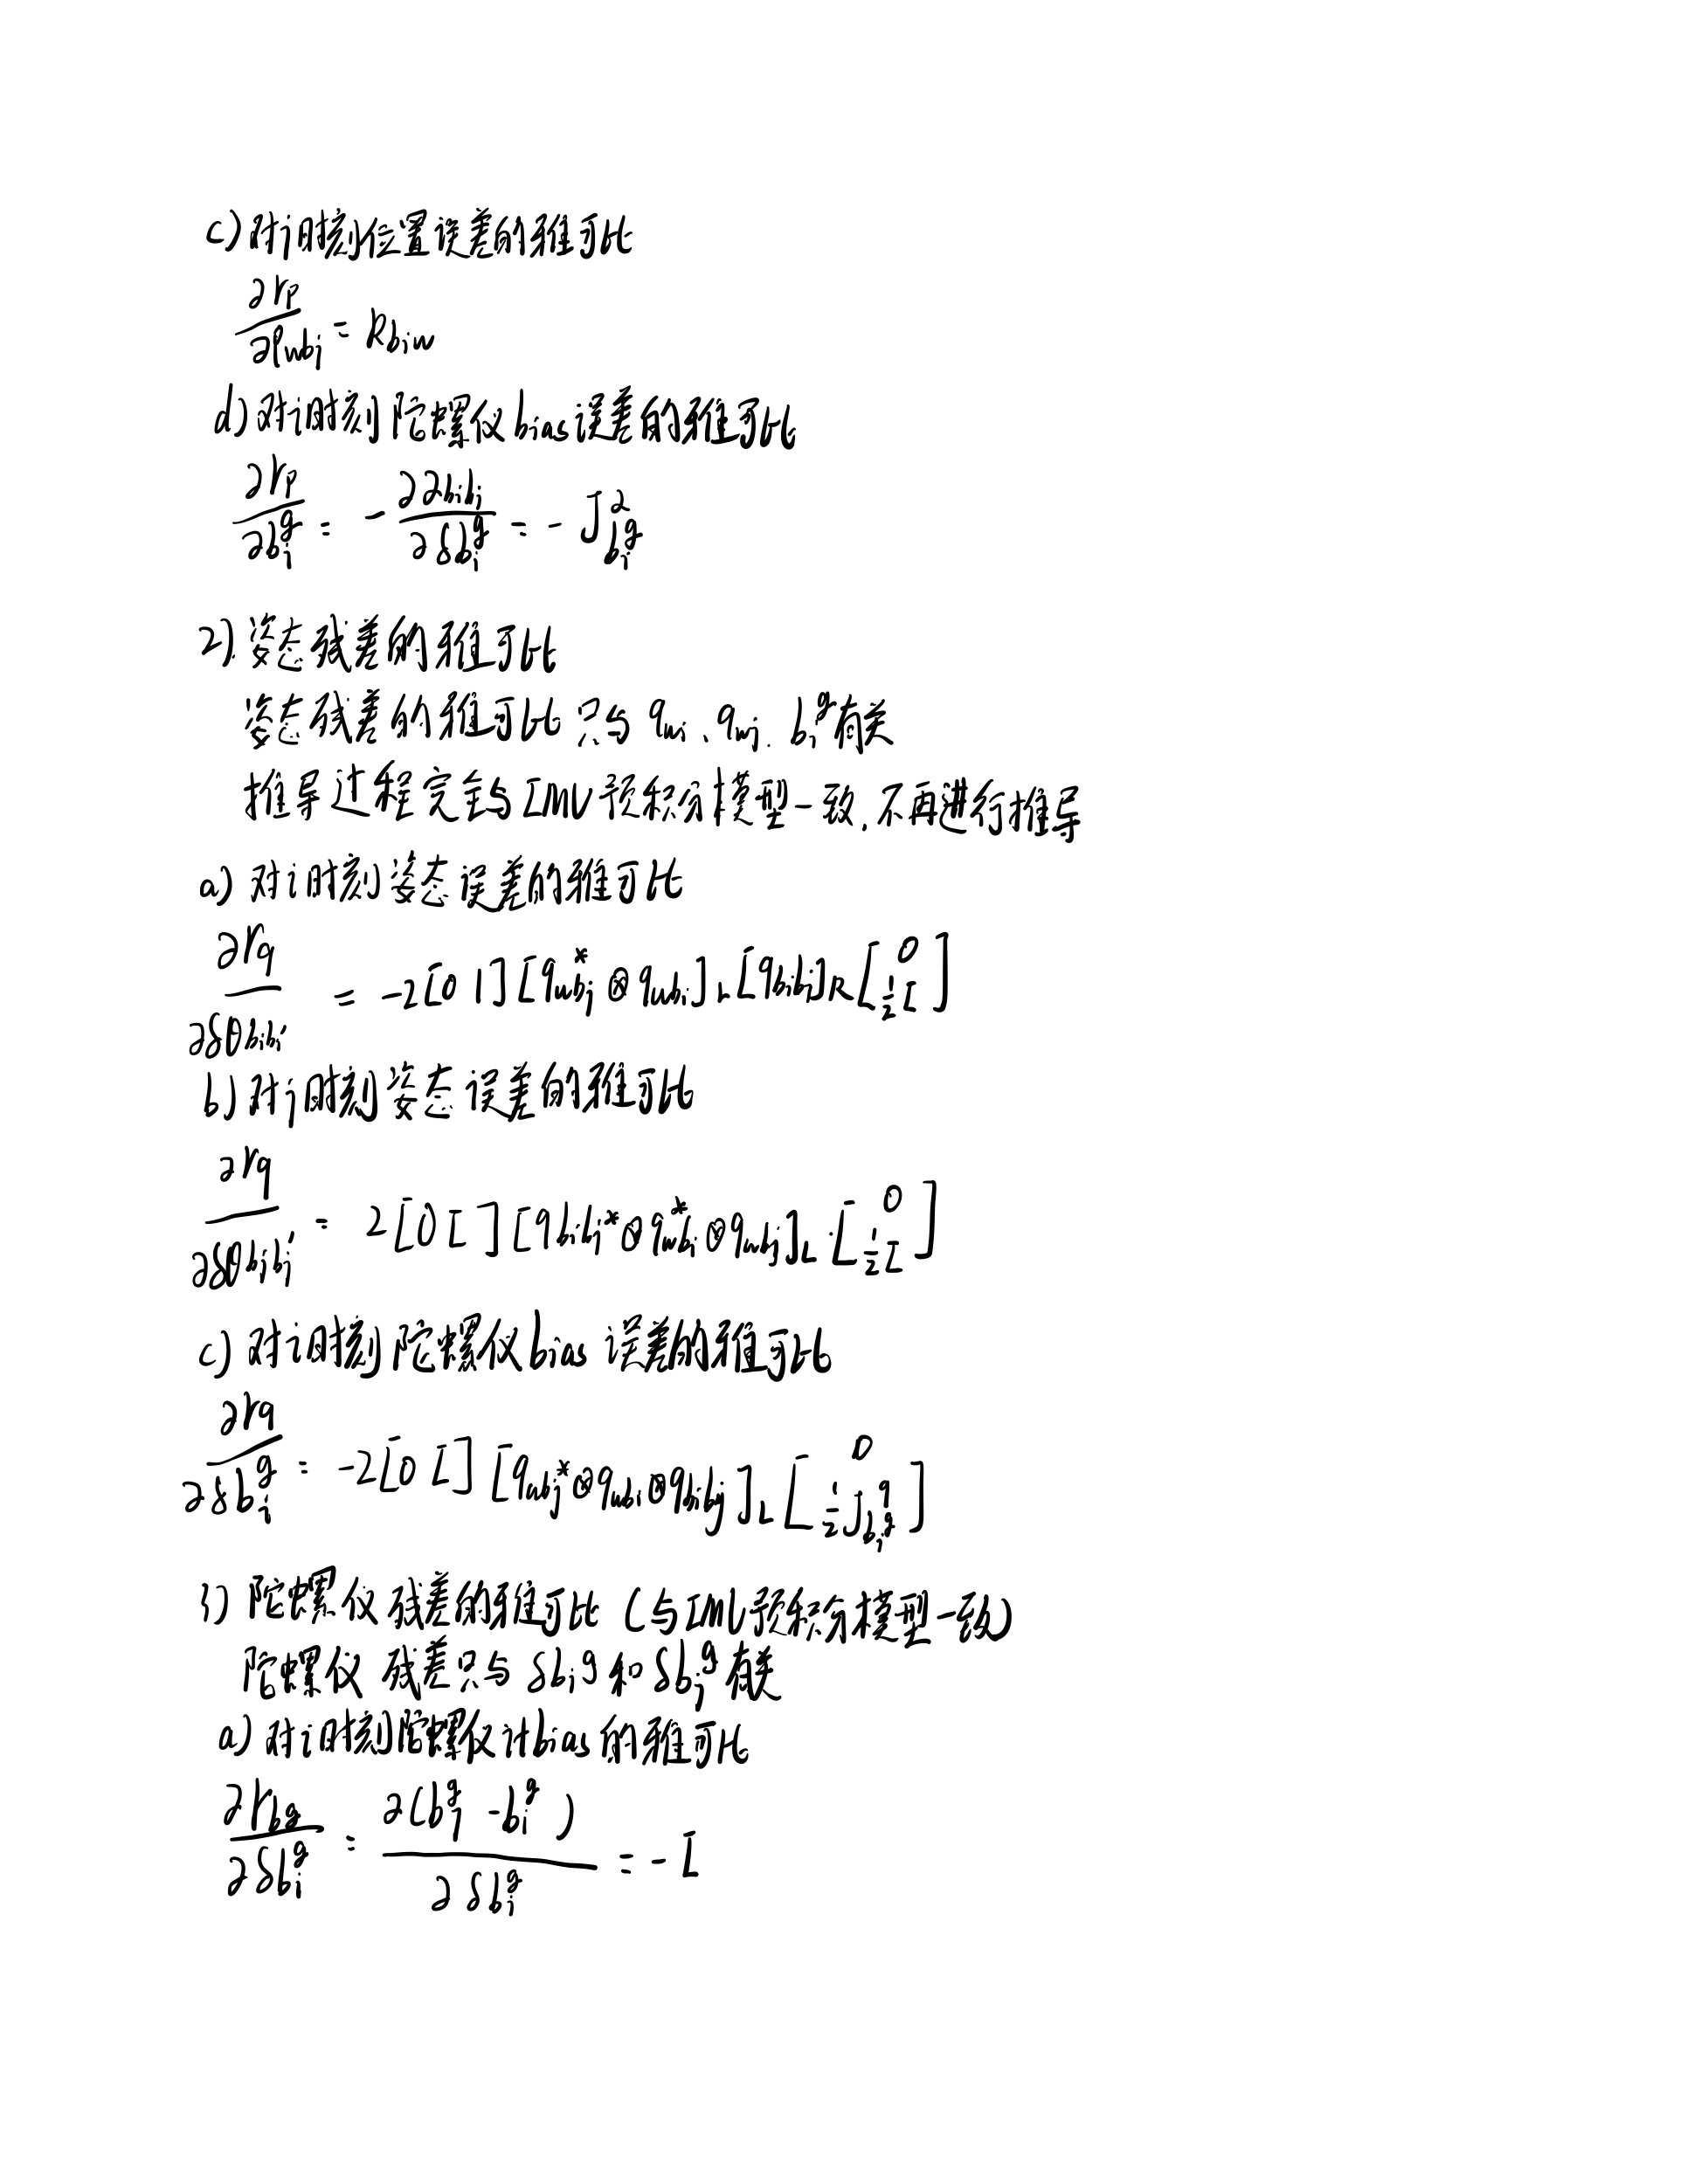 c) 对j时刻位置误差的雅可比
∂r_p / ∂p_{wb_j} = R_{b_i w}
d) 对i时刻陀螺仪bias误差的雅可比
∂r_p / ∂b_i^g = - ∂α_{b_i b_j} / ∂δb_i^g = - J^α_{b_i^g}
2). 姿态残差的雅可比
姿态残差的雅可比只与 q_{wi}、q_{wj}. b_i^g有关
推导过程完全与IMU预积分模型一致,不再进行推导
a) 对i时刻姿态误差的雅可比
∂r_q / ∂δθ_{b_i b_i'} = -2[0 I][q_{wb_j}^* ⊗ q_{wb_i}]_L [q_{b_i b_j}]_R [0 ; ½ I]
b) 对j时刻姿态误差的雅可比
∂r_q / ∂δθ_{b_j b_j'} = 2[0 I][q_{b_i b_j}^* ⊗ q_{wb_i}^* ⊗ q_{wb_j}]_L · [0 ; ½ I]
c) 对i时刻陀螺仪bias误差的雅可比
∂r_q / ∂δb_i^g = -2[0 I][q_{wb_j}^* ⊗ q_{wb_i} ⊗ q_{b_i b_j}]_L [0 ; ½ J^q_{b_i^g}]
3) 陀螺仪残差的雅可比(与IMU预积分模型一致)
陀螺仪残差只与 δb_i^g 和 δb_j^g 有关
a) 对i时刻陀螺仪计bias的雅可比
∂r_{bg} / ∂δb_i^g = ∂(b_j^g - b_i^g) / ∂δb_i^g = -I